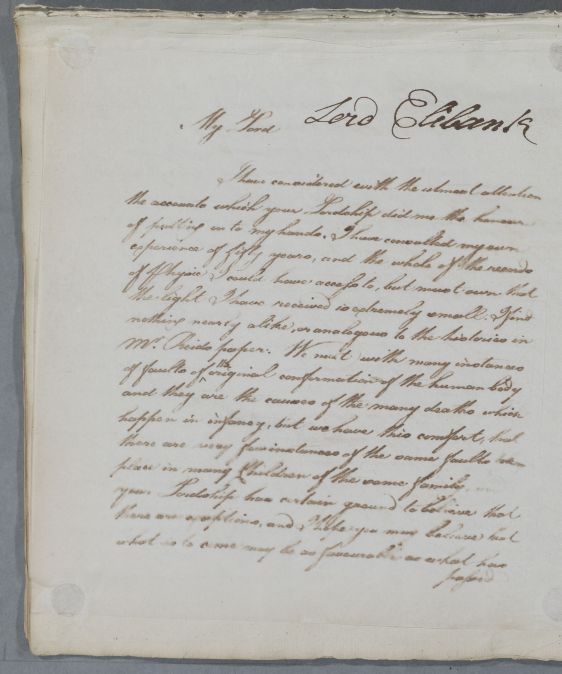 My Lord Lord Elibank
I have considered with the utmost attention
the accounts which your Lordship did me the honour
of putting into my hands. I have consulted my own
experience of fifty years, and the whole of the records
of Physic I could have access to, but must own that
the light I have received is extremely small. I find
nothing nearly alike, or analogous to the histories in
Mr. Reids paper. We meet with many instances
of faults of the original conformation of the human body
and they are the causes of the many deaths which
happen in infancy, but we have this comfort, that
there are very few instances of the same faults
place in many Children of the same family,
your Lordship has certain ground to believe that
there are exceptions, and I hope you may believe that
what is to come may be as favourable as what has
passed